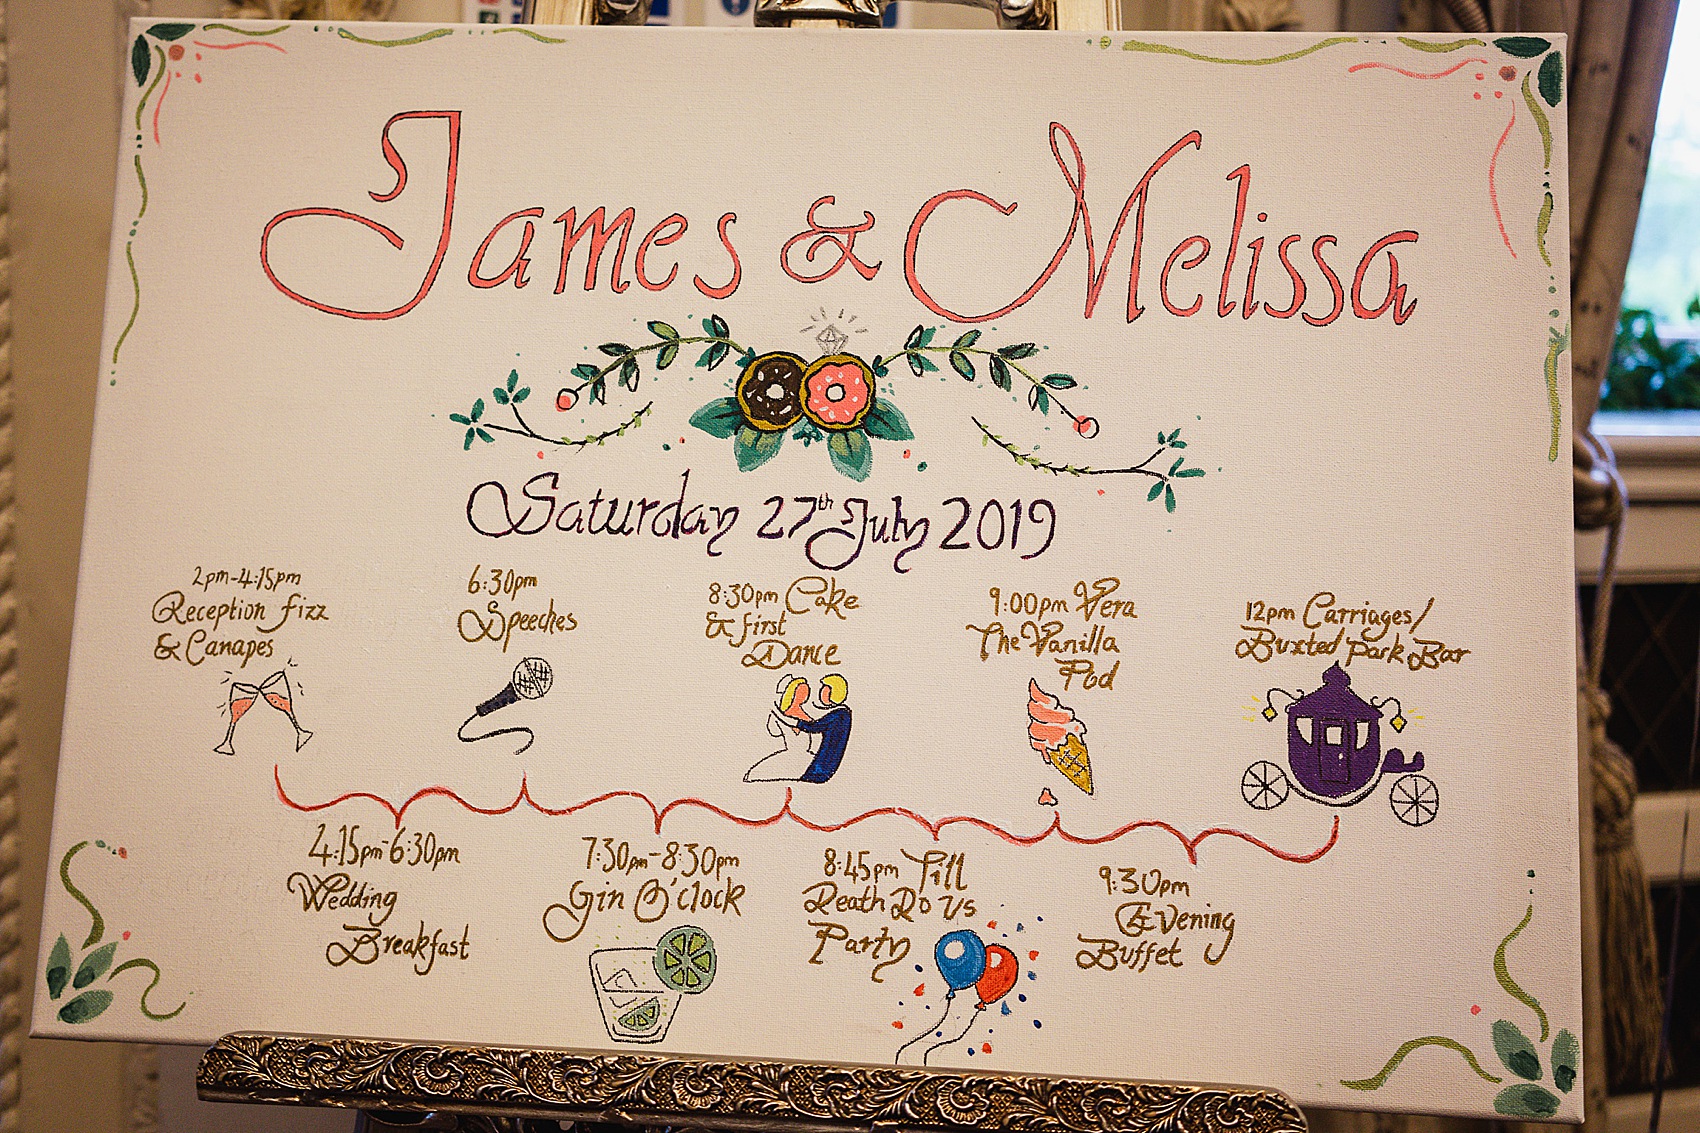 James & Melissa
Saturday 27th July 2019
2pm-4:15pm
Reception fizz
& Canapes
6:30pm
Speeches
8:30pm Cake
& first
Dance
9:00pm Vera
The Vanilla
Pod
12pm Carriages/
Buxted Park Bar
4:15pm-6:30pm
Wedding
Breakfast
7:30pm-8:30pm
Gin O'clock
8:45pm Till
Death Do Us
Party
9:30pm
Evening
Buffet